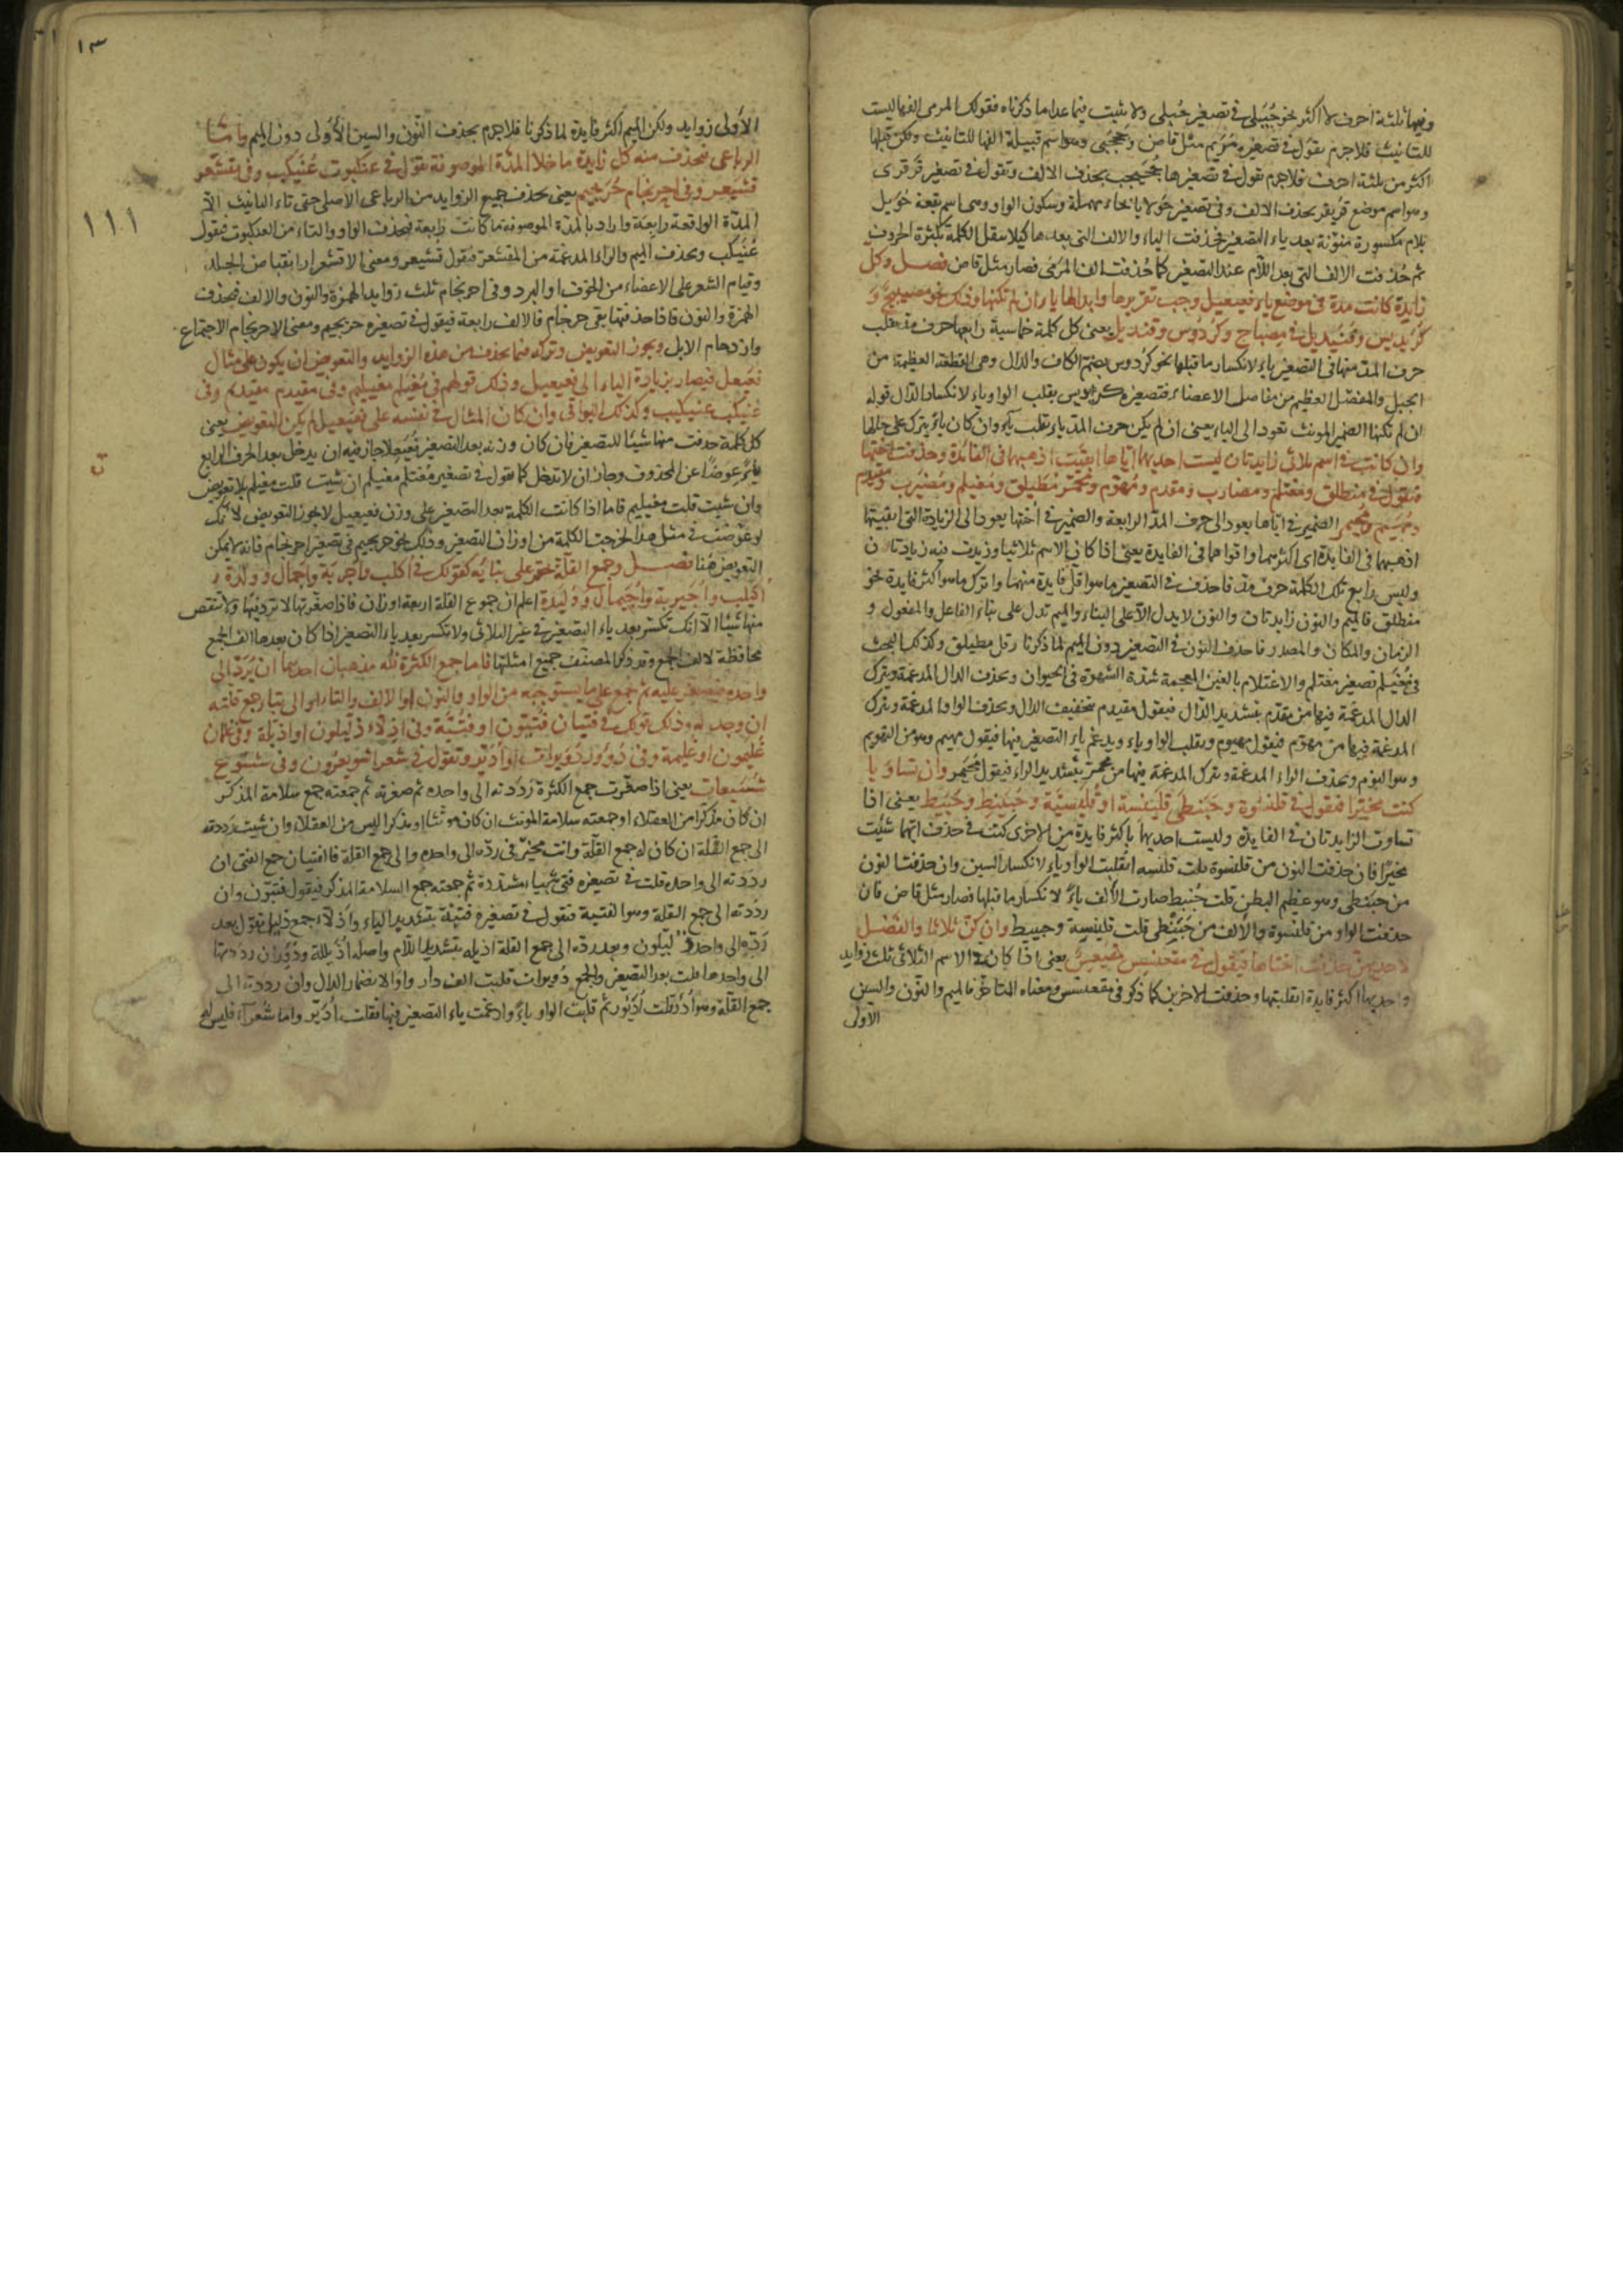 وفيها ثلثة احرف لا اكثر نحو حُبَيلى في تصغير حُبلى ولا يثبت فيما عدا ما ذكرناه فقولك المرمى الفها ليست
للتانيث فلاجرم يقول في تصغيره مُرَيم مثل قاض وجحجبى وهو اسم قبيلة الفها للتانيث ولكن قبلها
اكثر من ثلثة احرف فلاجرم تقول في تصغيرها جُحَيجب بحذف الالف وتقول في تصغير قرقرى
وهو اسم موضع قريقر بحذف الالف وفي تصغير حولايا بالحاء مهملة وسكون الواو وهي اسم بقعة حُوَيل
بلام مكسورة منوّنة بعد ياء التصغير فحذفت الياء والالف التي بعدها كيلا يثقل الكلمة بكثرة الحروف
ثم حُذفت الالف التي بعد اللام عند التصغير كما حُذفت الف المرمى فصار مثل قاض فصل وكل
زايدة كانت مدة في موضع ياء فعيعيل وجب تقريرها وابدالها ياء ان لم تكنها وذلك نحو مصيبيح و
كُرَيديس وقُنَيديل في مصباح وكُردوس وقنديل يعني كل كلمة خماسية رابعها حرف مد يقلب
حرف المد منها في التصغير ياء لانكسار ما قبلها نحو كُردوس بضم الكاف والدال وهي القطعة العظيمة من
الخيل والمفصل العظيم من مفاصل الاعضاء فتصغيره كريديس بقلب الواو ياء لانكسار الدال قوله
ان لم تكنها الضمير المونث تعود الى الياء يعني ان لم يكن حرف المد ياء يقلب ياء وان كان ياء يترك على حالها
وان كانت في اسم ثلاثي زايدتان ليست احديهما اياها ابقيت اذهبهما في الفائدة وحذفت اختها
فتقول في منطلق ومغتلم ومضارب ومقدم ومهوّم ومحمر مُطَيلق ومُغَيلم ومُضَيرب ومقيدم
ومُهَيّم ومُحَيمر الضمير في اياها يعود الى حرف المد الرابعة والضمير في اختها يعود الى الزيادة التي ابقيتها
اذهبهما في الفايدة اى اكثرهما واقواهما في الفايدة يعني اذا كان الاسم ثلاثيا وزيدت فيه زيادتان
وليس رابع تلك الكلمة حرف مد فاحذف في التصغير ما هو اقل فايدة منهما واترك ما هو اكثر فايدة نحو
منطلق فالميم والنون زايدتان والنون لا يدل الا على البناء والميم تدل على بناء الفاعل والمفعول و
الزمان والمكان والمصدر فاحذف النون في التصغير دون الميم لما ذكرنا وقل مطيلق وكذلك البحث
في مُغَيلم تصغير مغتلم والاغتلام بالغين المعجمة شدة الشهوة في الحيوان وبحذف الدال المدغمة ويترك
الدال المدغمة فيها من مقدّم بتشديد الدال فيقول مقيدم بتخفيف الدال وبحذف الواو المدغمة ويترك
المدغمة فيها من مهوّم فيقول مهيوم ويقلب الواو ياء ويدغم ياء التصغير فيها فيقول مهيم وهو من التهويم
وهو النوم وبحذف الراء المدغمة ويترك المدغمة فيها من محمر بتشديد الراء فيقول مُحَيمر وان تساويا
كنت مخيرا فتقول في قلنسوة وحَبَنطى قلينسة او قُلَيسيّة وحُبَينط وحُبَيط يعني اذا
تساوت الزايدتان في الفايدة وليست احديهما باكثر فايدة من الاخرى كنت في حذف ايتهما شئت
مخيّرا فان حذفت النون من قلنسوة قلت قليسيه انقلبت الواو ياء لانكسار السين وان حذفت النون
من حبنطى وهو عظيم البطن قلت حُبَيط صارت الالف ياءً لانكسار ما قبلها فصار مثل قاض فان
حذفت الواو من قلنسوة والالف من حَبَنطى قلت قلينسة وحبينط وان كن ثلاثا والفضل
لاحديهن حذفت اختاها فيقول في مقعنسس مُقَيعس يعني اذا كان في الاسم الثلاثي ثلث زوايد
واحديها اكثر فايدة ابقيتها وحذفت الاخرين كما ذكر في مقعنسس ومعناه المتاخر فالميم والنون والسين
الاولى
١٣
١١١
الاولى زوايد ولكن الميم اكثر فايدة لما ذكرنا فلاجرم بحذف النون والسين الاولى دون الميم واما
الرباعي فتحذف منه كل زايدة ما خلا المدة الموصوفة تقول في عنكبوت عُنَيكب وفي مقشعر
قشيعر وفي احرنجام حُرَيجيم يعني بحذف جميع الزوايد من الرباعي الاصلي حتى تاء التانيث الا
المدّة الواقعة رابعة واراد بالمدة الموصوفة ما كانت رابعة فبحذف الواو والتاء من العنكبوت فيقول
عُنَيكب وبحذف الميم والراء المدغمة من المقشعر فيقول قشيعر ومعنى الاقشعرار انقباض الجلد
وقيام الشعر على الاعضاء من الخوف او البرد وفي احرنجام ثلث زوايد الهمزة والنون والالف فبحذف
الهمزة والنون فاذا حذفتها بقي حرجام فالالف رابعة فيقول في تصغيره حريجيم ومعنى الاحرنجام الاجتماع
وازدحام الابل ويجوز التعويض وتركه فيما يحذف من هذه الزوايد والتعويض ان يكون على مثال
فُعَيعل فيصار بزيادة الياء الى فعيعيل وذلك قولهم في مُغَيلم مغيليم وفي مقيدم مقيديم وفي
عُنَيكب عنيكيب وكذلك البواقي وان كان المثال في نفسه على فعيعيل لم يكن التعويض يعني
كل كلمة حذفت منها شيئا للتصغير فان كان وزنه بعد التصغير فُعَيعلا جاز فيه ان يدخل بعد الحرف الرابع
ياءً عوضًا عن المحذوف وجاز ان لا تدخل كما تقول في تصغير مُغتلم مغيلم ان شئت قلت مغيلم بلا تعويض
وان شئت قلت مغيليم فاما اذا كانت الكلمة بعد التصغير على وزن فعيعيل لا يجوز التعويض لانك
لو عوّضت في مثل هذا لخرجت الكلمة من اوزان التصغير وذلك نحو حريجيم في تصغير احرنجام فانه لا يمكن
التعويض هُنا فصل وجمع القلّة يحقر على بنائه كقولك في اكلب واجربة واجمال وولدة
أُكَيلب وأُجَيربة وأُجَيمال ووُلَيدة اعلم ان جموع القلة اربعة اوزان فاذا صغّرتها لا تزد فيها ولا تنقص
منها شيئًا الا انك تكسر بعد ياء التصغير في غير الثلاثي ولا تكسر بعد ياء التصغير اذا كان بعدها الف الجمع
محافظة لالف الجمع وقد ذكر المصنف جميع امثلتها فاما جمع الكثرة فله مذهبان احدهما ان يُرَدّ الى
واحده فيصغر عليه ثم يجمع على ما يستوجبه من الواو والنون او الالف والتاء او الى بناء جمع قلته
ان وجد له وذلك قولك في فتيان فُتَيّون او فُتَيّة وفي اذلاء ذليلون او اذيلة وفي غلمان
غُليّمون او غُلَيمة وفي دُوُر دُوَيرات او أُديّر وتقول في شعراء شويعرون وفي شسوع
شُسَيعات يعني اذا صغّرت جمع الكثرة رَدَدته الى واحده ثم صغرته ثم جمعته جمع سلامة المذكر
ان كان مذكرا من العقلاء او جمعته سلامة المونث ان كان مونثا او مذكرا ليس من العقلاء وان شيت رددته
الى جمع القلة ان كان له جمع القلّة وانت مخيّر في ردّه الى واحده والى جمع القلة فالفتيان جمع الفتى ان
رَدَدته الى واحده قلت في تصغيره فتيّ بياء مشددة ثم جمعته جمع السلامة المذكر فيقول فتيّون وان
رَدَدته الى جمع القلة وهو الفتية فتقول في تصغيره فتيّة بتشديد الياء واذلاء جمع ذليل تقول بعد
رَدّه الى واحده ذليّلون وبعد رده الى جمع القلة اذيلة بتشديد اللام واصله أُذَيللة ودُوُر ان رددتها
الى واحدها قلت بعد التصغير والجمع دُويرات قلبت الف دار واوًا لانضمام الدال وان رددته الى
جمع القلّة وهو أدْوُر قلت أُدَيْوِر ثم قلبت الواو ياءً وادغمت ياء التصغير فيها فقلت أُدَيّر واما شُعرَاء فليس له